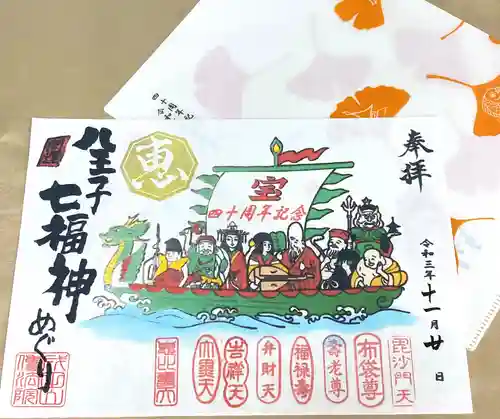 奉拝
令和三年十一月廿日
宝
四十周年記念
恵
八王子
七福神
めぐり
毘沙門天
布袋尊
寿老尊
福禄寿
弁財天
吉祥天
大黒天
恵比寿天
四十周年
令和